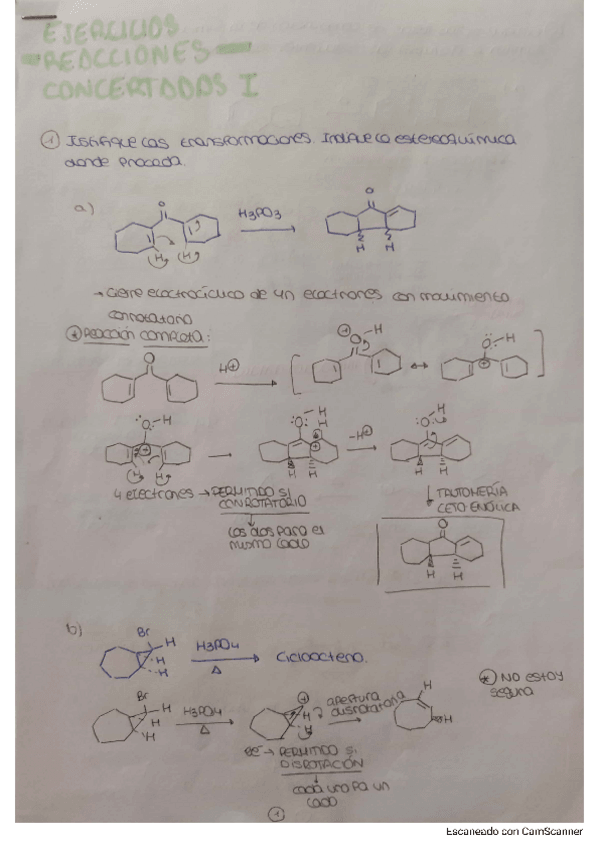 EJERCICIOS
REACCIONES
CONCERTADAS I
① Justifique las transformaciones. Indique la estereoquímica
donde proceda.
a)
O
H3PO3
O
H H
H H
→ Cierre electrocíclico de 4n electrones con movimiento
conrotatorio
* Reacción completa:
O
H⊕
⊕ O-H
:Ö-H
⊕
:Ö-H
:Ö-H
-H⊕
:Ö-H
H H
H H
H H
4 electrones → PERMITIDO SI
CONROTATORIO
Los dos para el
mismo lado
TAUTOMERÍA
CETO ENÓLICA
O
H H
b)
Br
H
H
H3PO4
Δ
Cicloocteno.
* NO ESTOY
segura
Br
H
H
H3PO4
Δ
⊕
H
H
apertura
disrotatoria
H
H
2e⁻ → PERMITIDO SI
DISROTACIÓN
cada uno pa un
lado
①
Escaneado con CamScanner